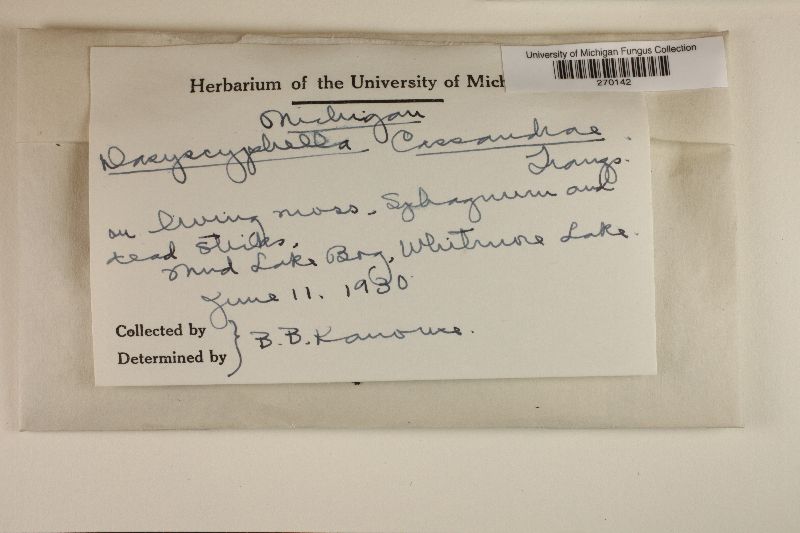 University of Michigan Fungus Collection
270142
Herbarium of the University of Mich
Michigan
Dasyscyphella Cassandrae
Tranzs.
on living moss - Sphagnum and
dead sticks.
Mud Lake Bog, Whitmore Lake.
June 11. 1930.
Collected by
Determined by
B.B. Kanouse.